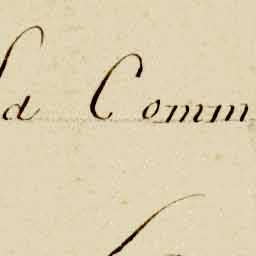 la Comm